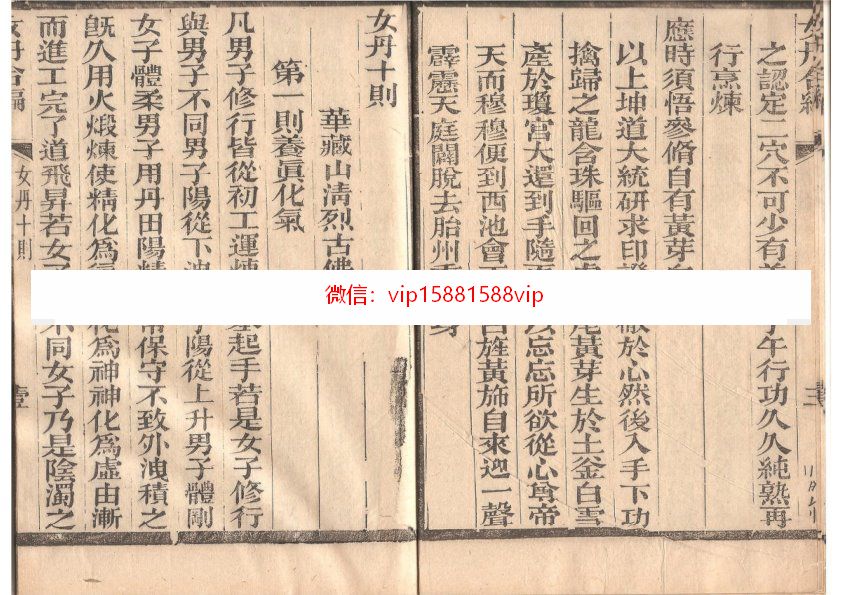 女丹合編
三
之認定二穴不可少有 午行功久久純熟再
行烹煉
應時須悟參脩自有黃芽
以上坤道大統研求印證 於心然後入手下功
擒歸之龍含珠驅回之 尾黃芽生於土釜白雪
產於瓊宮大還到手隨 忘忘所欲從心 帝
天而穆穆便到西池會 白旌黃旆自來迎一聲
霹靂天庭闢脫去胎州 身
女丹十則
華藏山清烈古佛
第一則養眞化氣
凡男子修行皆從初工運煉 基起手若是女子修行
與男子不同男子陽從下洩 子陽從上升男子體剛
女子體柔男子用丹田陽精 常保守不致外洩積之
旣久用火煅煉使精化爲 化爲神神化爲虛由漸
而進工完了道飛昇若女子 不同女子乃是陰濁之
女丹合編
女丹十則
壹
微信：vip15881588vip